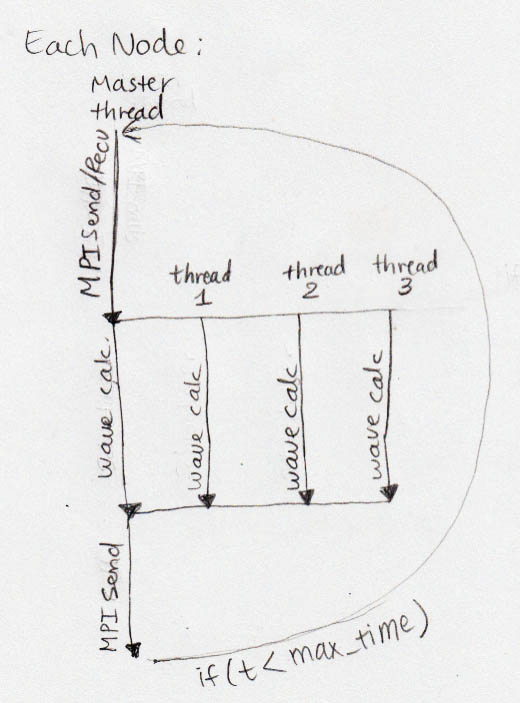 Each Node:
Master
thread
MPI Send/Recv
thread
1
thread
2
thread
3
wave calc.
wave calc
wave calc
wave calc
MPI Send
if(t < max_time)